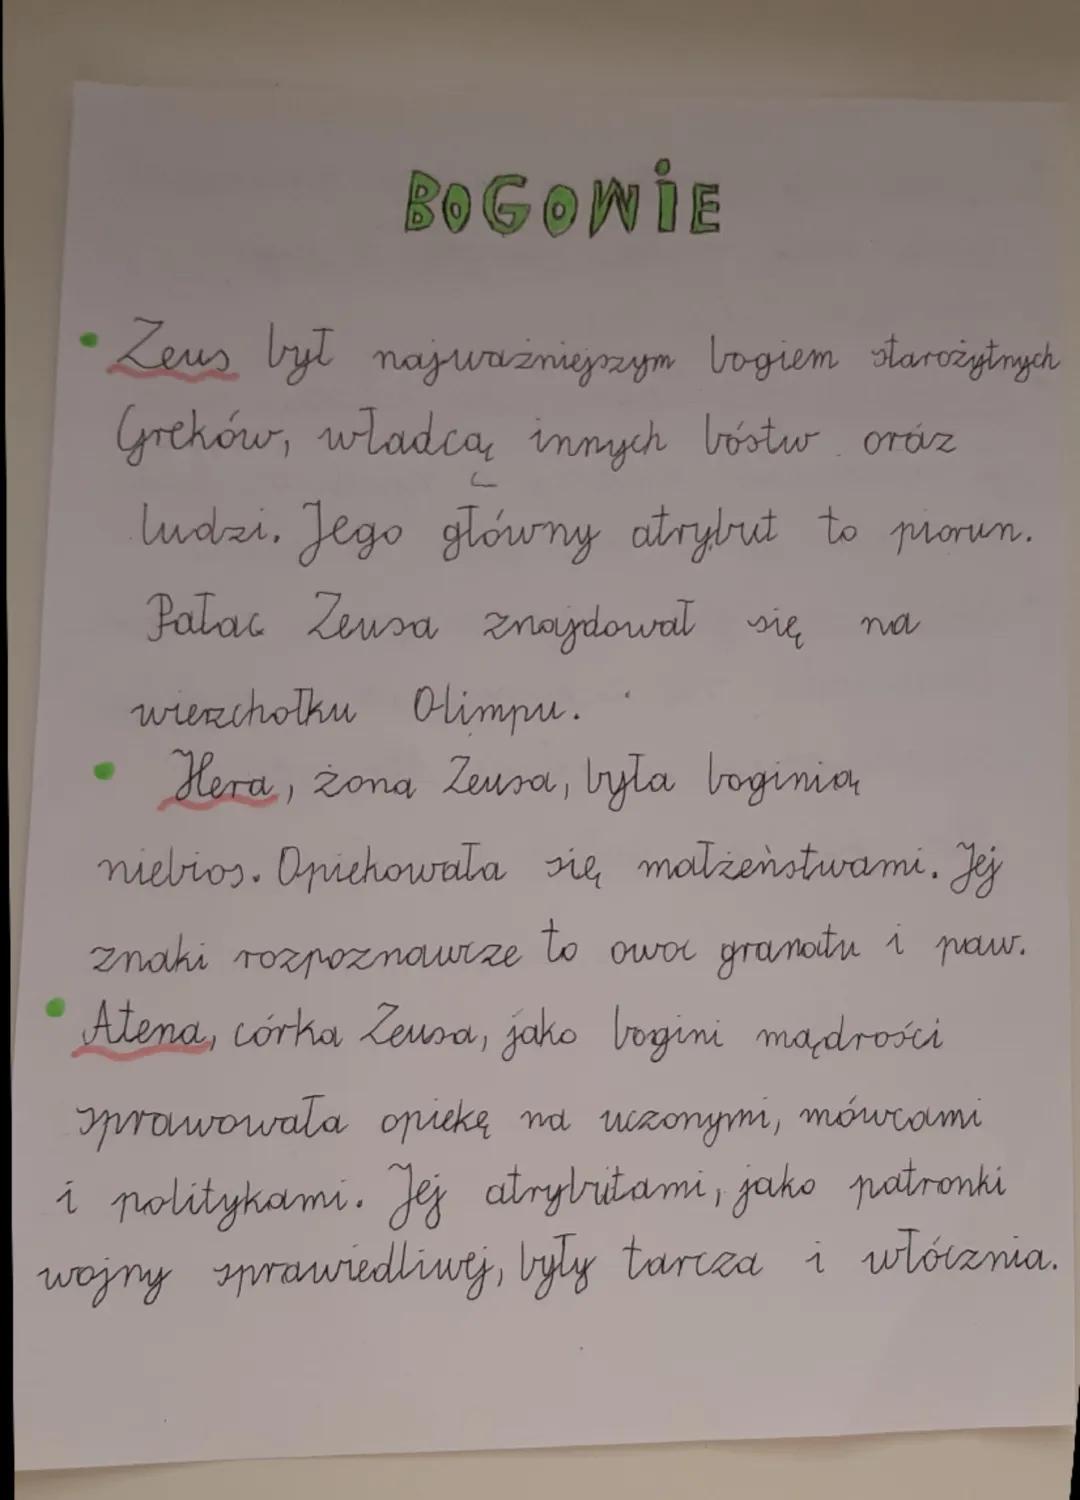 BOGOWiE
• Zeus był najważniejszym bogiem starożytnych
Greków, władcą innych bóstw oraz
ludzi. Jego główny atrybut to piorun.
Pałac Zeusa znajdował się na
wierzchołku Olimpu.
• Hera, żona Zeusa, była boginią
niebios. Opiekowała się małżeństwami. Jej
znaki rozpoznawcze to owoc granatu i paw.
• Atena, córka Zeusa, jako bogini mądrości
sprawowała opiekę na uczonymi, mówcami
i politykami. Jej atrybutami, jako patronki
wojny sprawiedliwej, były tarcza i włócznia.